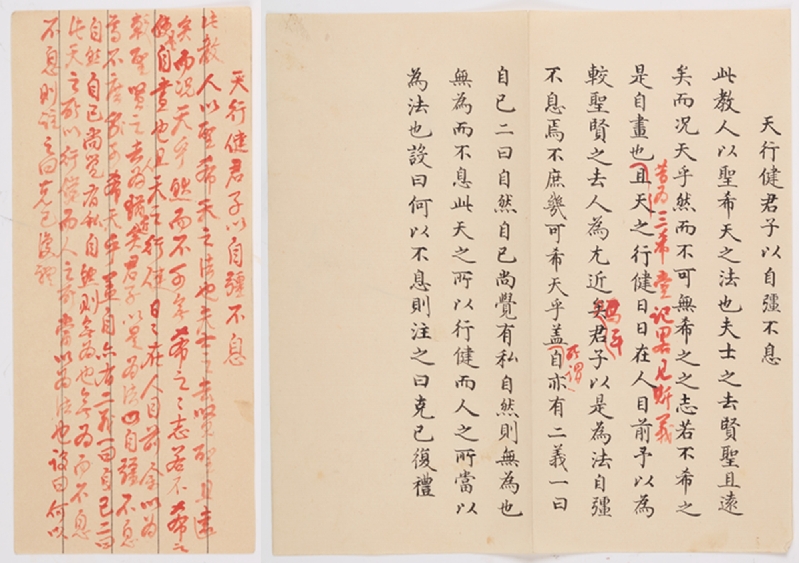 天行健君子以自彊不息
此教人以聖希天之法也夫士之去賢聖且遠
矣而况天乎然而不可無希之之志若不希之
昔為三希堂記畧見斯義
是自畫也且天之行健日日在人目前予以為
焉耳
較聖賢之去人為尤近矣君子以是為法自彊
所謂
不息焉不庶幾可希天乎盖自亦有二義一曰
自己二曰自然自己尚覺有私自然則無為也
無為而不息此天之所以行健而人之所當以
為法也設曰何以不息則注之曰克己復禮
天行健君子以自彊不息
此教人以聖希天之法也夫士之去賢聖且遠
矣而况天乎然而不可無希之々志若不希之
是自畫也且天之行健日々在人目前余以為
較聖賢之去為近矣君子以是為法自彊不息
焉不庶幾可希天乎盖自亦有二義一曰自己二曰
自然自己尚覺有私自然則無為也無為而不息
此天之所以行健而人之所當以為法也設曰何以
不息則注之曰克己復禮